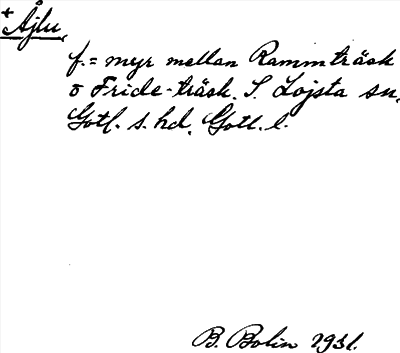 + Ajlu,
f. = myr mellan Rammträsk
o Fride-träsk. S. Lojsta sn,
Gotl. s. hd, Gotl. l.
B. Bolin 1931.